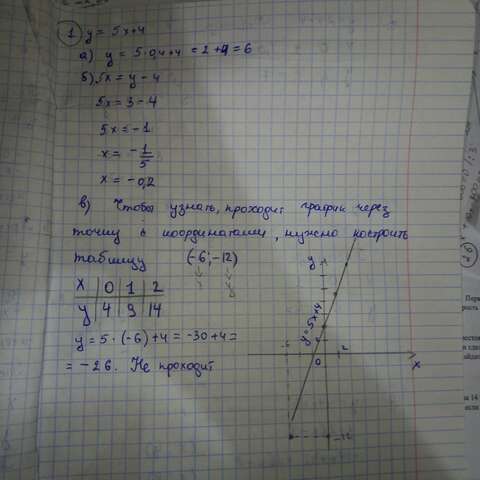 1 y = 5x+4
а) y = 5·0,4+4 = 2+4 = 6
б) 5x = y - 4
5x = 3 - 4
5x = -1
x = -1/5
x = -0,2
в) Чтобы узнать, проходит график через
точку с координатами, нужно построить
таблицу (-6; -12)
x y
x 0 1 2
y 4 9 14
y = 5·(-6)+4 = -30+4 =
= -26. Не проходит
y
y=5x+4
-6
0
2
x
-12